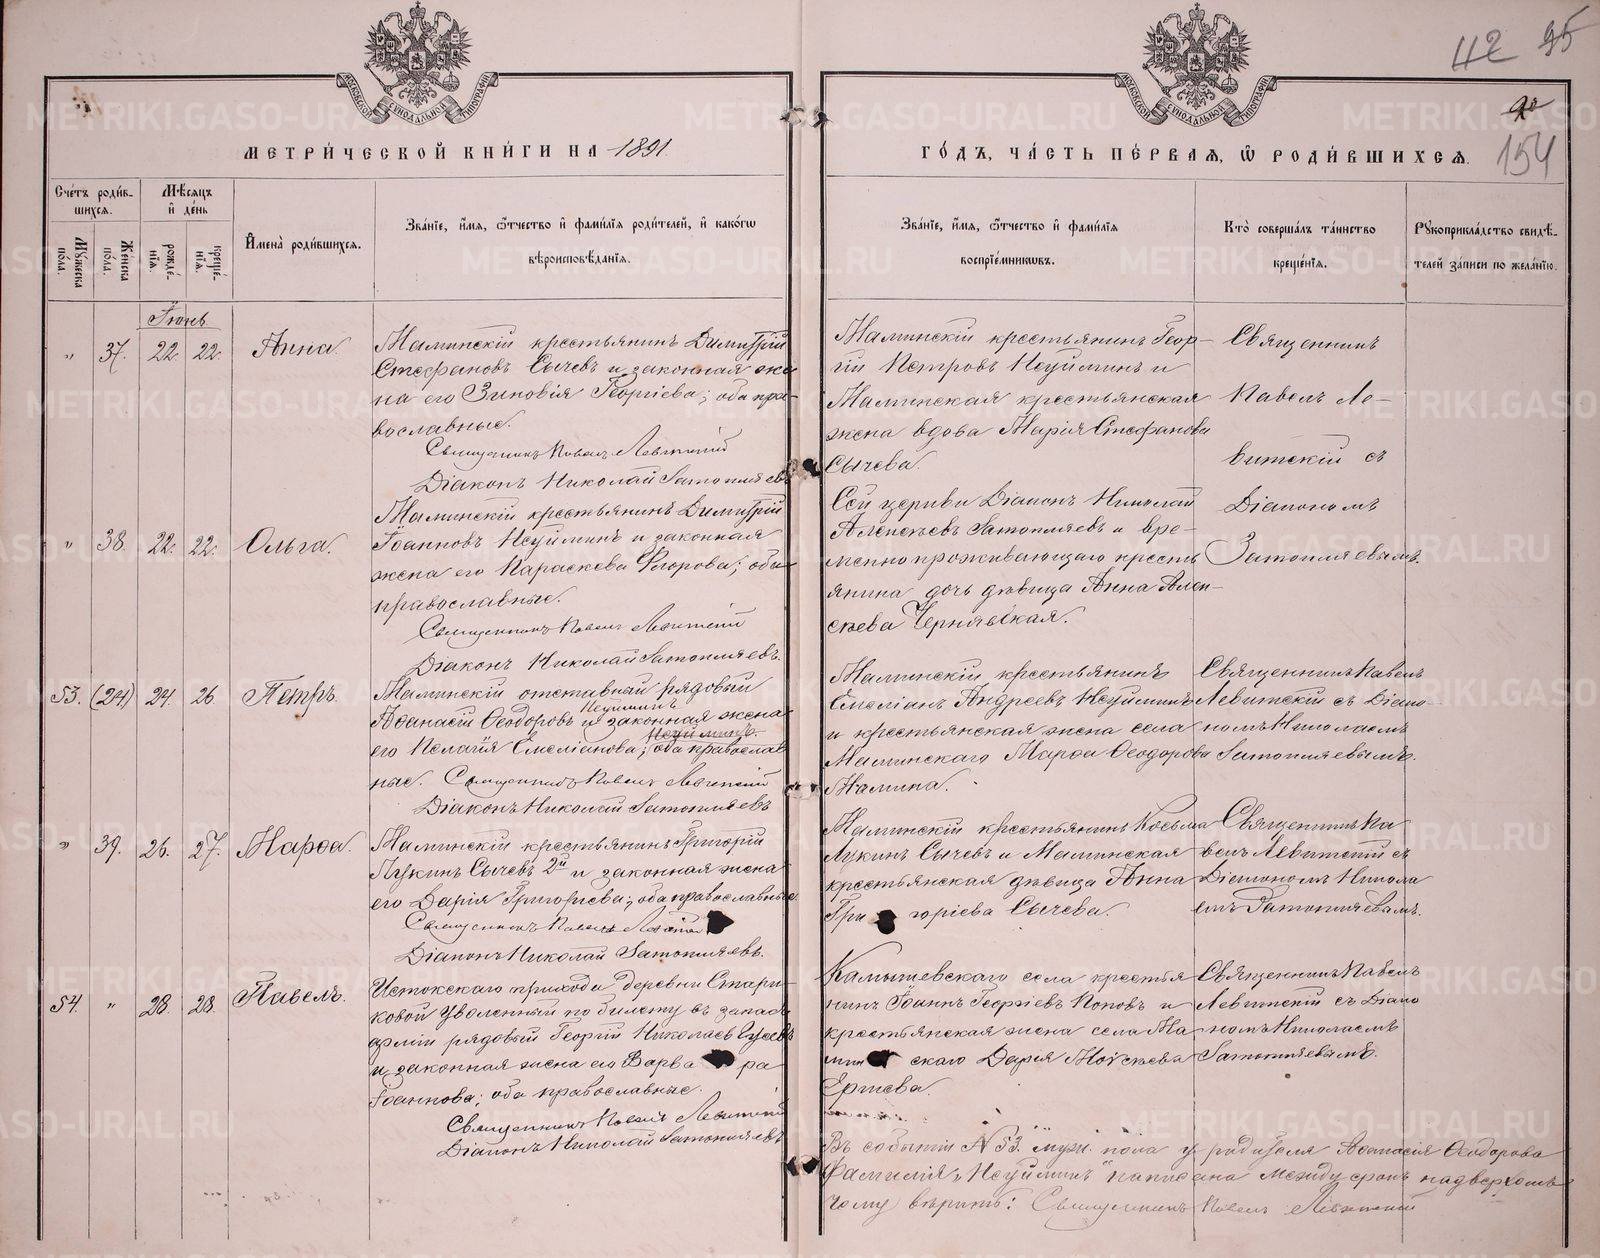 112 95
154
МОСКОВСКОЙ СУНОДАЛЬНОЙ ТИПОГРАФІИ
МОСКОВСКОЙ СУНОДАЛЬНОЙ ТИПОГРАФІИ
МЕТРИ́ЧЕСКОЙ КНИ́ГИ НА 1891
ГО́ДЪ, ЧА́СТЬ ПЕ́РВАЯ, Ѡ РОДИ́ВШИХСЯ.
Сче́тъ роди́в-
шихся.
Мѣ́сяцъ
и де́нь
Мꙋ́жеска
по́ла.
Же́нска
по́ла.
рожде́-
нїя.
креще́-
нїя.
И҆мена̀ роди́вшихся.
Зва́нїе, и҆́мя, ѻ҆́тчество и҆ фами́лїя роди́телей, и҆ како́гѡ
вѣроисповѣ́данїя.
Зва́нїе, и҆́мя, ѻ҆́тчество и҆ фами́лїя
воспрїе́мникѡвъ.
Кто̀ соверша́лъ та́инство
креще́нїя.
Рꙋкоприкла́дство свидѣ́-
телей за́писи по жела́нїю.
Іюнь
„ 37. 22. 22. Анна.
Маминскій крестьянинъ Димитрій
Стефановъ Сычевъ и законная же-
на его Зиновія Георгіева; оба пра-
вославные.
Священникъ Павелъ Левитскій
Діаконъ Николай Затопляевъ
Маминскій крестьянинъ Геор-
гій Петровъ Неуйминъ и
Маминская крестьянская
жена вдова Марія Стефанова
Сычева.
Священникъ
Павелъ Ле-
витскій съ
Діакономъ
Затопляевымъ.
„ 38. 22. 22. Ольга.
Маминскій крестьянинъ Димитрій
Іоанновъ Неуйминъ и законная
жена его Параскева Флорова; оба
православные.
Священникъ Павелъ Левитскій
Діаконъ Николай Затопляевъ.
Сей церкви Діаконъ Николай
Алексѣевъ Затопляевъ и вре-
менно проживающаго кресть
янина дочь дѣвица Анна Алек-
сѣева Чернявская.
53. (24) 24. 26. Петръ.
Маминскій отставный рядовый
Неуйминъ
Аѳанасій Ѳеодоровъ и законная жена
Неуйминъ.
его Пелагія Емеліанова; оба православ
ные. Священникъ Павелъ Левитскій
Діаконъ Николай Затопляевъ
Маминскій крестьянинъ
Емеліанъ Андреевъ Неуйминъ
и крестьянская жена села
Маминскаго Марѳа Ѳеодорова
Мамина.
Священникъ Павелъ
Левитскій съ Діако-
номъ Николаемъ
Затопляевымъ.
„ 39. 26. 27. Марѳа.
Маминскій крестьянинъ Григорій
Лукинъ Сычевъ 2й и законная жена
его Дарія Григориева; оба православные
Священникъ Павелъ
Діаконъ Николай Затопляевъ.
Маминскій крестьянинъ Косьма
Лукинъ Сычевъ и Маминская
крестьянская дѣвица Анна
Гри горіева Сычева.
Священникъ Па
велъ Левитскій съ
Діакономъ Никола
емъ Затопляевымъ.
54. „ 28. 28. Павелъ.
Истокскаго прихода деревни Стари-
ковой Уволенный по билету въ запасъ
арміи рядовый Георгій Николаевъ
и законная жена его Варва ра
Іоаннова; оба православные.
Священникъ Павелъ Левитскій
Діаконъ Николай Затопляевъ
Камышевскаго села крестья
нинъ Іоаннъ Георгіевъ Поповъ и
крестьянская жена села Ма
мин скаго Дарія Моѵсѣева
Ершева.
Священникъ Павелъ
Левитскій съ Діако
номъ Николаемъ
Затопляевымъ.
Въ событіи № 53. муж. пола у родителя Аѳанасія Ѳеодорова
Фамилія „Неуйминъ" написана между строкъ надверхомъ
чему вѣрить: Священникъ Павелъ Левитскій
METRIKI.GASO-URAL.RU